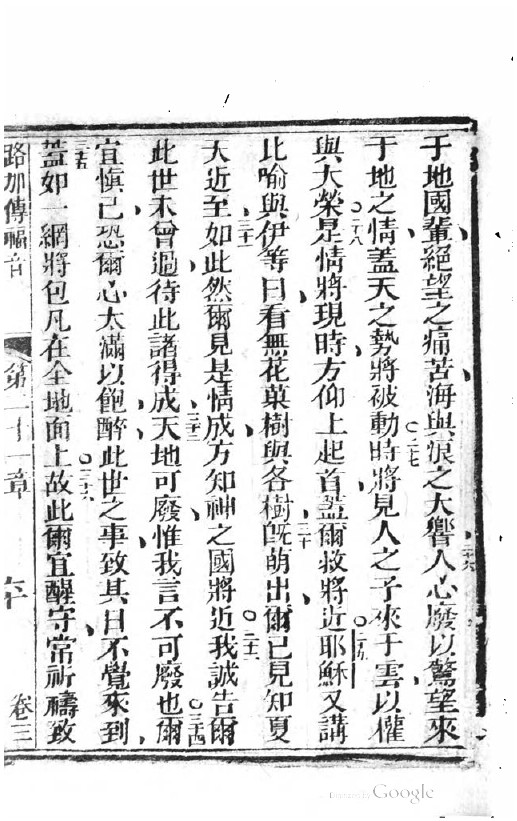 于地國輩絕望之痛苦海與浪之大響二十六人心廢以驚望來
于地之情蓋天之勢將被動二十七時將見人之子來于雲以權
與大榮二十八是情將現時方仰上起首蓋爾救將近二十九耶穌又講
比喻與伊等曰看無花菓樹與各樹三十旣萌出爾已見知夏
大近至三十一如此然爾見是情成方知神之國將近三十二我誠告爾
此世未曾過待此諸得成三十三天地可廢惟我言不可廢也三十四爾
宜愼己恐爾心太滿以飽醉此世之事致其日不覺來到
三十五蓋如一網將包凡在全地面上三十六故此爾宜醒守常祈禱致
路加傳福音 第二十一章 六十 卷三
Digitized by Google